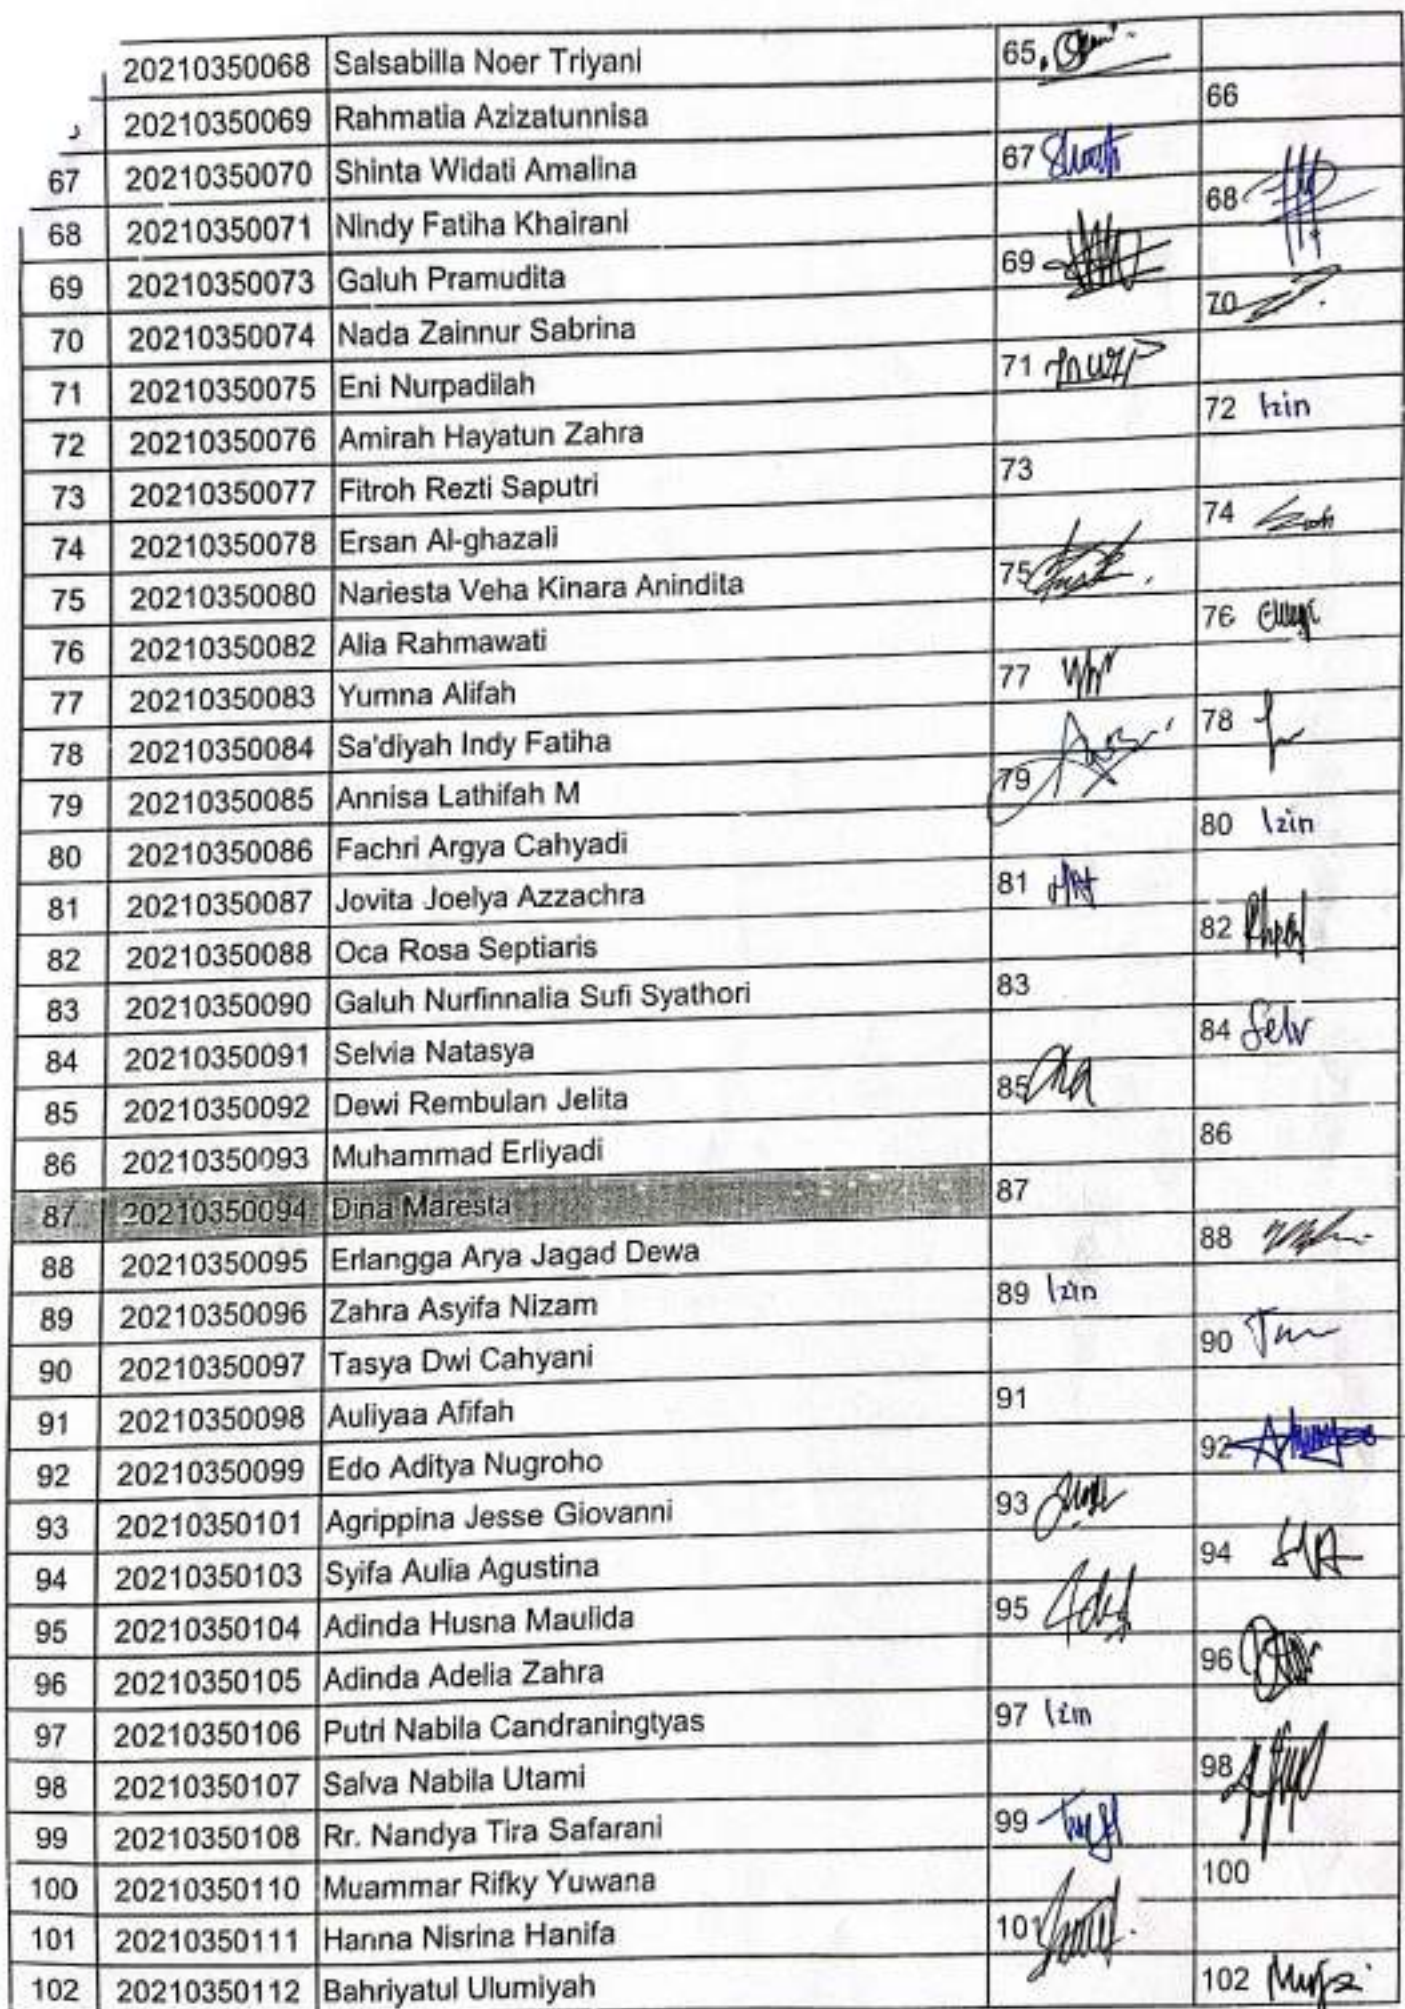 20210350068 Salsabilla Noer Triyani 65.
20210350069 Rahmatia Azizatunnisa 66
67 20210350070 Shinta Widati Amalina 67
68 20210350071 Nindy Fatiha Khairani 68
69 20210350073 Galuh Pramudita 69
70 20210350074 Nada Zainnur Sabrina 70
71 20210350075 Eni Nurpadilah 71
72 20210350076 Amirah Hayatun Zahra 72 Izin
73 20210350077 Fitroh Rezti Saputri 73
74 20210350078 Ersan Al-ghazali 74
75 20210350080 Nariesta Veha Kinara Anindita 75
76 20210350082 Alia Rahmawati 76
77 20210350083 Yumna Alifah 77
78 20210350084 Sa'diyah Indy Fatiha 78
79 20210350085 Annisa Lathifah M 79
80 20210350086 Fachri Argya Cahyadi 80 Izin
81 20210350087 Jovita Joelya Azzachra 81
82 20210350088 Oca Rosa Septiaris 82
83 20210350090 Galuh Nurfinnalia Sufi Syathori 83
84 20210350091 Selvia Natasya 84 Selv
85 20210350092 Dewi Rembulan Jelita 85
86 20210350093 Muhammad Erliyadi 86
87 20210350094 Dina Maresta 87
88 20210350095 Erlangga Arya Jagad Dewa 88
89 20210350096 Zahra Asyifa Nizam 89 Izin
90 20210350097 Tasya Dwi Cahyani 90
91 20210350098 Auliyaa Afifah 91
92 20210350099 Edo Aditya Nugroho 92
93 20210350101 Agrippina Jesse Giovanni 93
94 20210350103 Syifa Aulia Agustina 94
95 20210350104 Adinda Husna Maulida 95
96 20210350105 Adinda Adelia Zahra 96
97 20210350106 Putri Nabila Candraningtyas 97 Izin
98 20210350107 Salva Nabila Utami 98
99 20210350108 Rr. Nandya Tira Safarani 99
100 20210350110 Muammar Rifky Yuwana 100
101 20210350111 Hanna Nisrina Hanifa 101
102 20210350112 Bahriyatul Ulumiyah 102